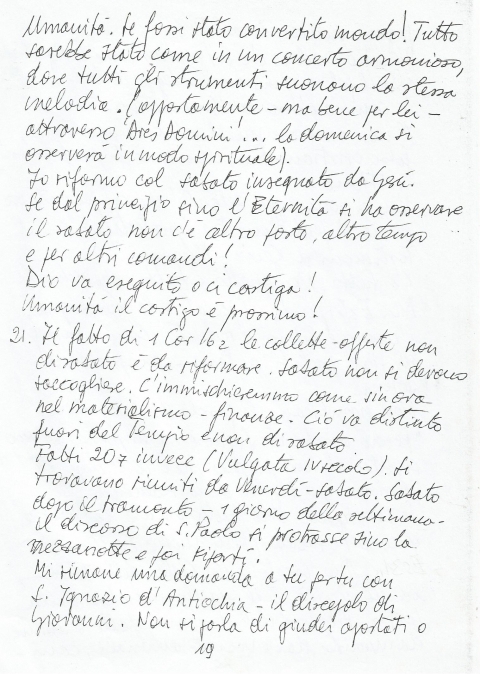 Umanità. Se fossi stato convertito mondo! Tutto
sarebbe stato come in un concerto armonioso,
dove tutti gli strumenti suonano la stessa
melodia. (apportamente - ma bene per lei -
attraverso 'Dies Domini'!... la domenica si
osserverà in modo spirituale).
Io riformo col sabato insegnato da Gesù.
Se dal principio sino l'Eternità si ha osservare
il sabato non c'è altro posto, altro tempo
e per altri comandi!
Dio va eseguito o ci castiga!
Umanità il castigo è prossimo!
21. Il fatto di 1 Cor 16 2 le collette-offerte non
di sabato è da riformare. Sabato non si devono
raccogliere. C'immischieremmo come sin ora
nel materialismo - finanze. Ciò va distinto
fuori del Tempio e non di sabato.
Fatti 20 7 invece (Vulgata IV secolo). Si
trovavano riuniti da Venerdì-sabato. Sabato
dopo il tramonto - 1 giorno della settimana-
il discorso di S. Paolo si protrasse sino la
mezzanotte e poi ripartì.
Mi rimane una domanda a tu per tu con
S. Ignazio d'Antiochia - il discepolo di
Giovanni. Non si parla di giudei apostati o
19